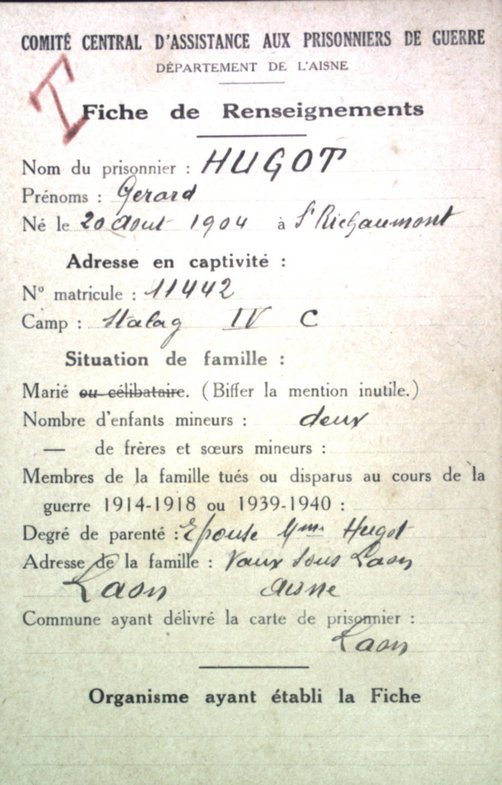 COMITÉ CENTRAL D'ASSISTANCE AUX PRISONNIERS DE GUERRE
DÉPARTEMENT DE L'AISNE
I
Fiche de Renseignements
Nom du prisonnier : HUGOT
Prénoms : Gerard
Né le 20 Aout 1904 à St Richaumont
Adresse en captivité :
N° matricule : 11442
Camp : Stalag IV C
Situation de famille :
Marié ou célibataire. (Biffer la mention inutile.)
Nombre d'enfants mineurs : deux
— de frères et sœurs mineurs :
Membres de la famille tués ou disparus au cours de la
guerre 1914-1918 ou 1939-1940 :
Degré de parenté : Epouse Mme Hugot
Adresse de la famille : Vaux sous Laon
Laon Aisne
Commune ayant délivré la carte de prisonnier :
Laon
Organisme ayant établi la Fiche